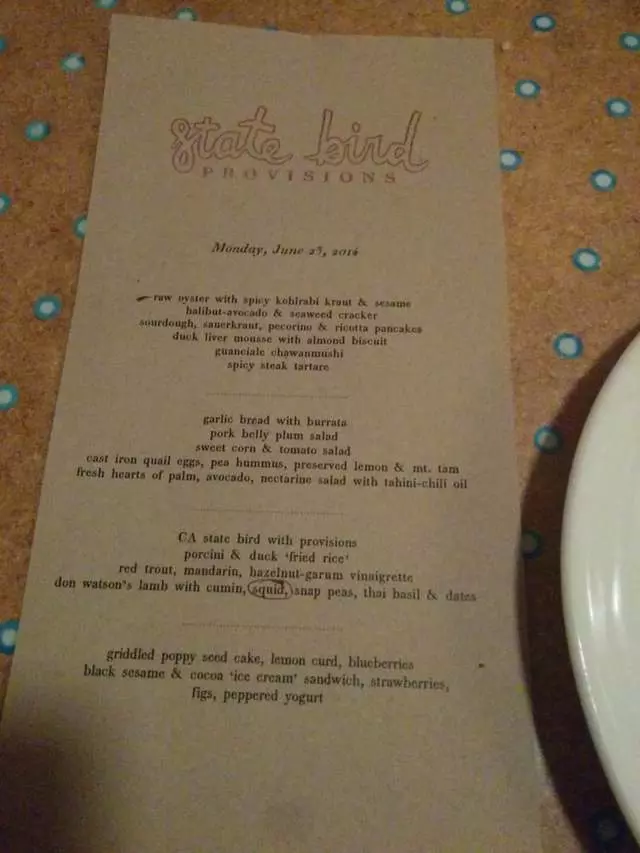 state bird
PROVISIONS
Monday, June 23, 2014
raw oyster with spicy kohlrabi kraut & sesame
halibut-avocado & seaweed cracker
sourdough, sauerkraut, pecorino & ricotta pancakes
duck liver mousse with almond biscuit
guanciale chawanmushi
spicy steak tartare
garlic bread with burrata
pork belly plum salad
sweet corn & tomato salad
cast iron quail eggs, pea hummus, preserved lemon & mt. tam
fresh hearts of palm, avocado, nectarine salad with tahini-chili oil
CA state bird with provisions
porcini & duck 'fried rice'
red trout, mandarin, hazelnut-garum vinaigrette
don watson's lamb with cumin, squid, snap peas, thai basil & dates
griddled poppy seed cake, lemon curd, blueberries
black sesame & cocoa 'ice cream' sandwich, strawberries,
figs, peppered yogurt